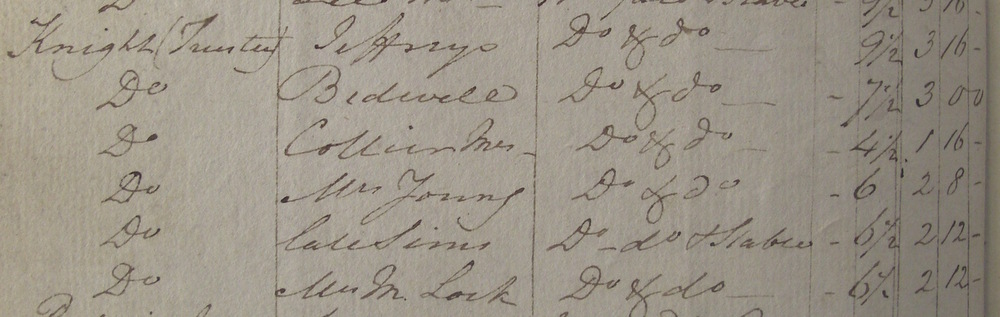 Knight (Trustee) Jeffrys Do & do — 9½ 3 16 -
Do Bidwell Do & do — - 7½ 3 00
Do Collier Mrs - Do & do - - 4½ 1 16 -
Do Mrs Young Do & do - 6 2 8 -
Do late Sims Do - do & Stable - 6½ 2 12 -
Do Mrs M. Lock Do & do — - 6½ 2 12 -